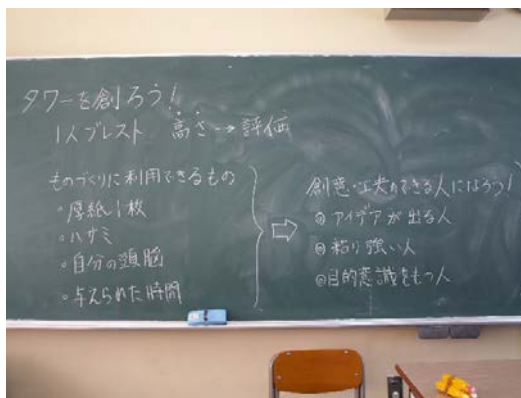 タワーを創ろう!
1人ブレスト 高さ→評価
ものづくりに利用できるもの
・厚紙1枚
・ハサミ
・自分の頭脳
・与えられた時間
⇨
創意・工夫のできる人になろう!
◎アイデアが出る人
◎粘り強い人
◎目的意識をもつ人